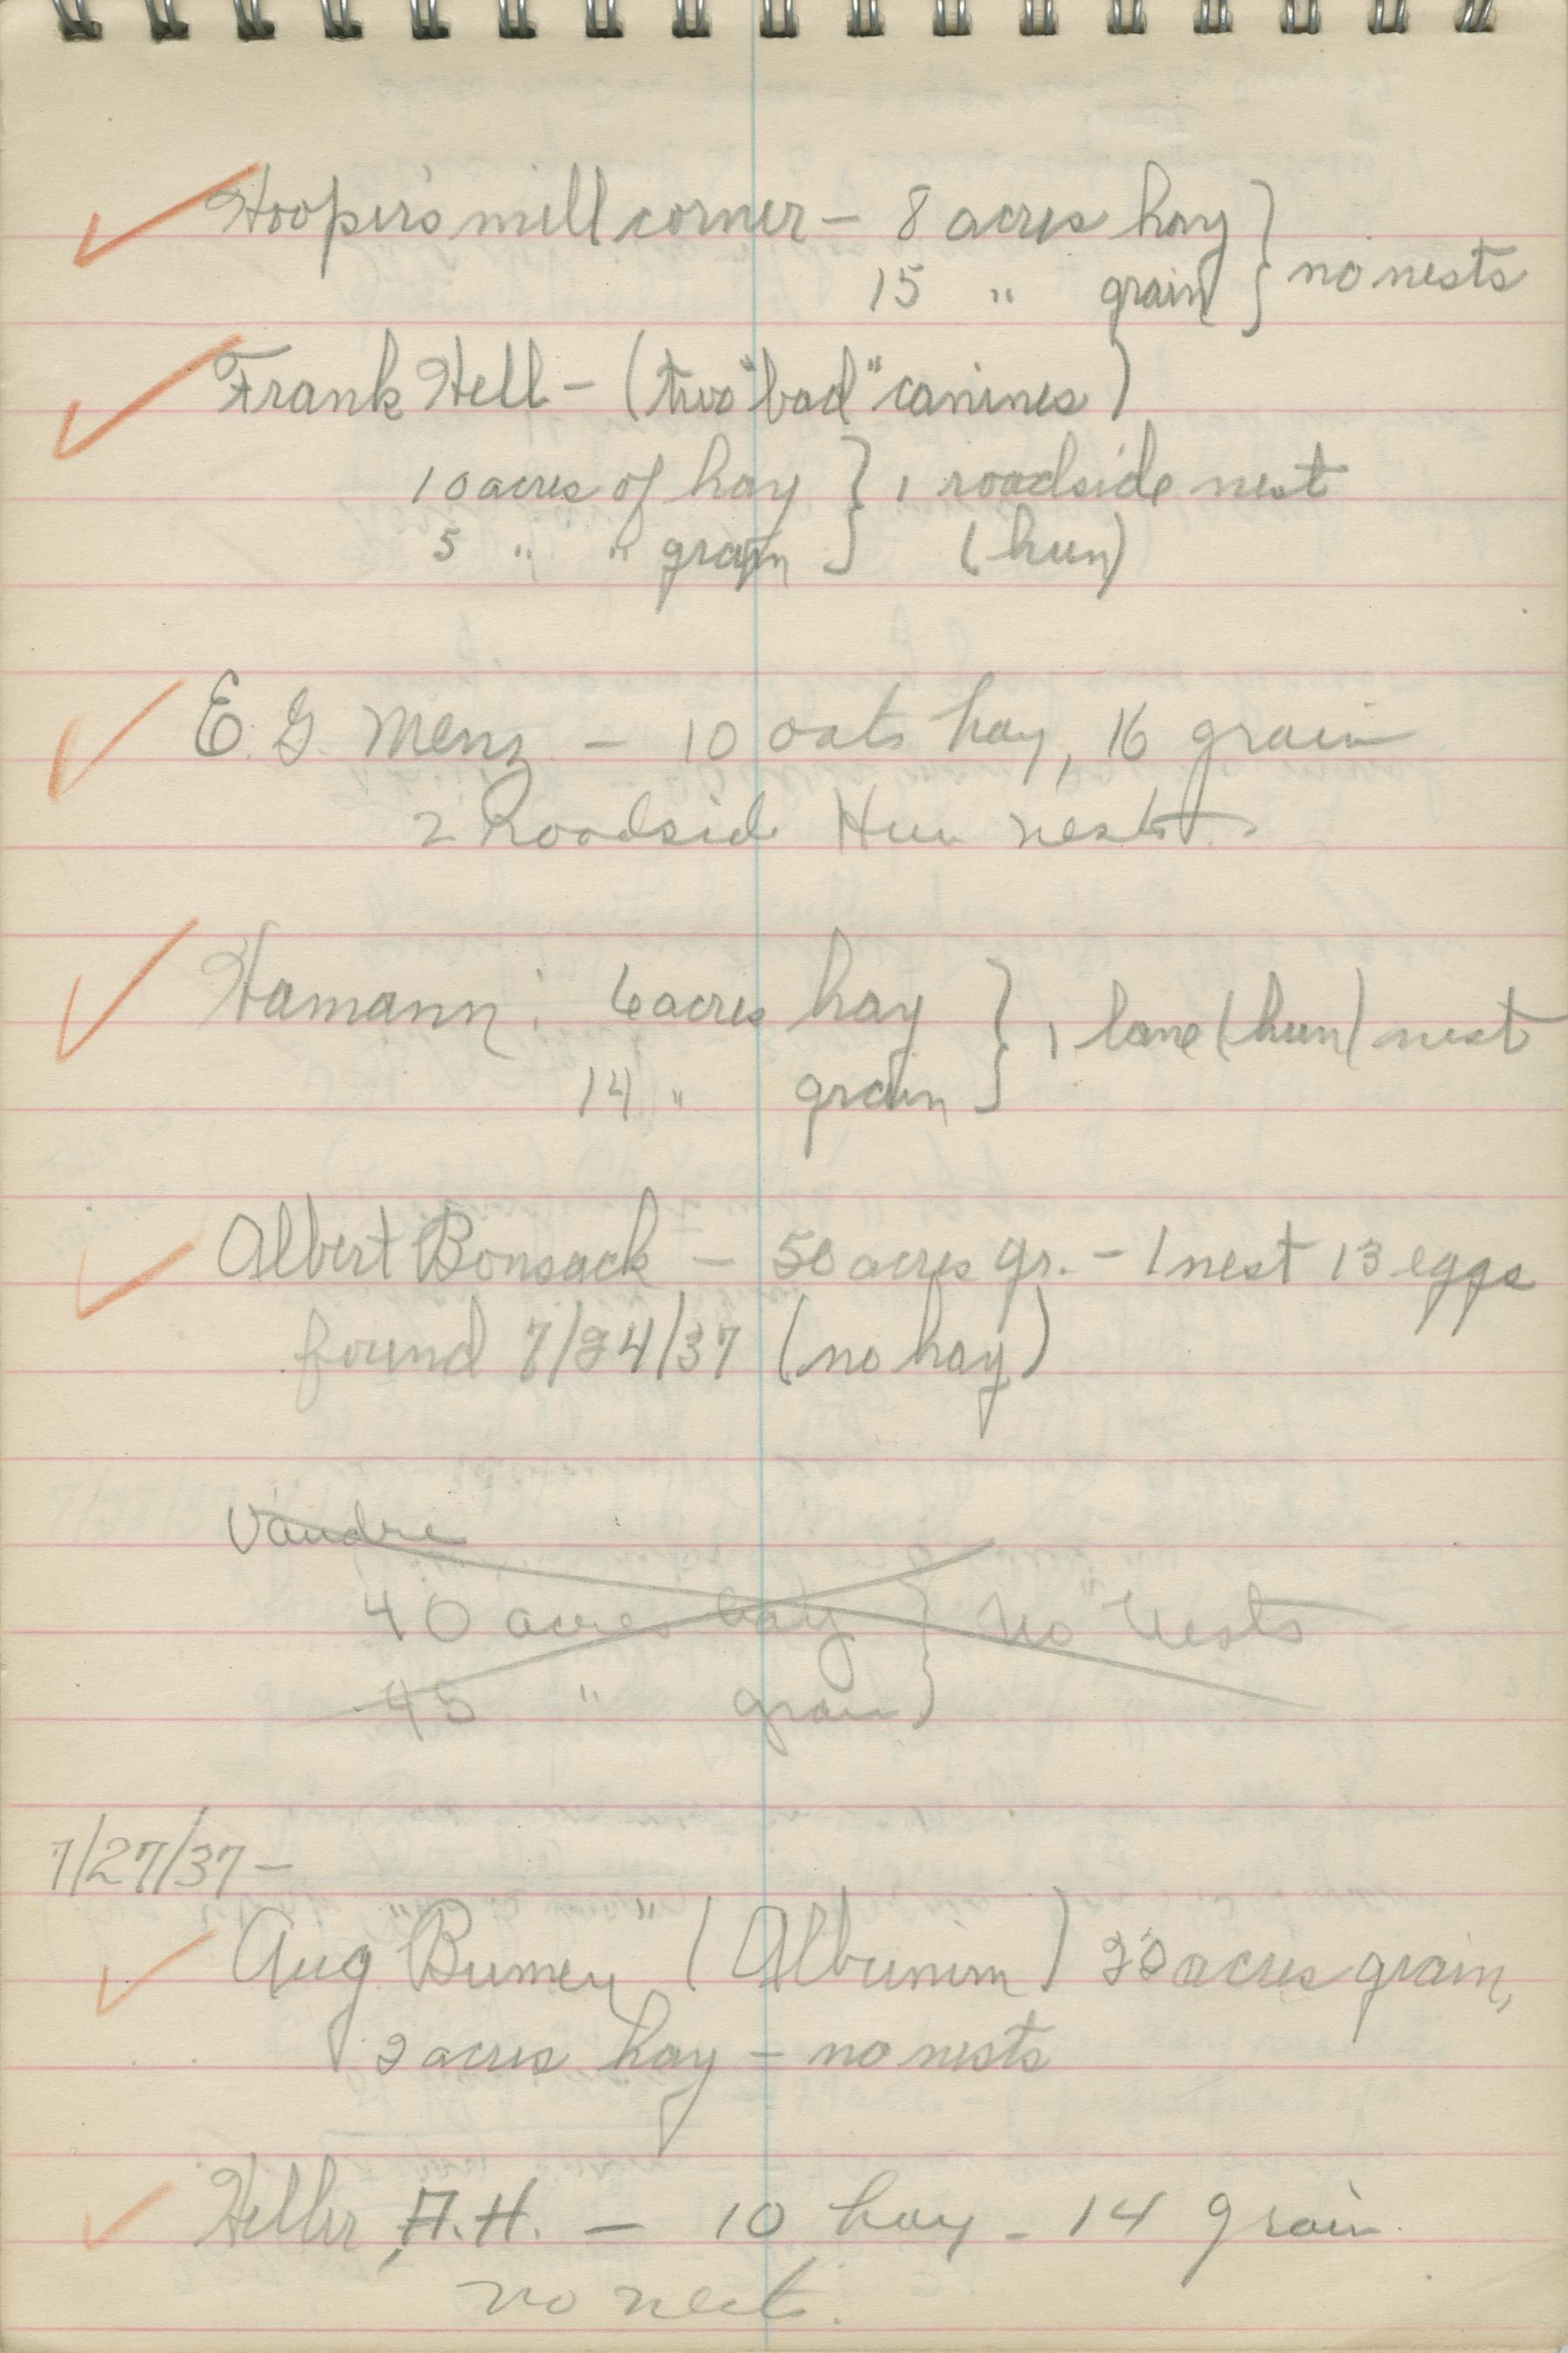 Hooper's mill corner – 8 acres hay } no nests
15 " grain
Frank Hell – (two "bad" canines)
10 acres of hay } 1 roadside nest
5 " " grain } (hun)
E. G. Menz – 10 oats hay, 16 grain
2 Roadside Hun nests
Hamann: 6 acres hay } 1 lane (hun) nest
14 " grain
Albert Bonsack – 50 acres gr. – 1 nest 13 eggs
found 7/24/37 (no hay)
Vandre
40 acres hay } No Nests
45 " grain
7/27/37 –
Aug "Bumey" (Albunim) acres grain,
2 acres hay – no nests
Heller, A.H. – 10 hay – 14 grain
no nest.